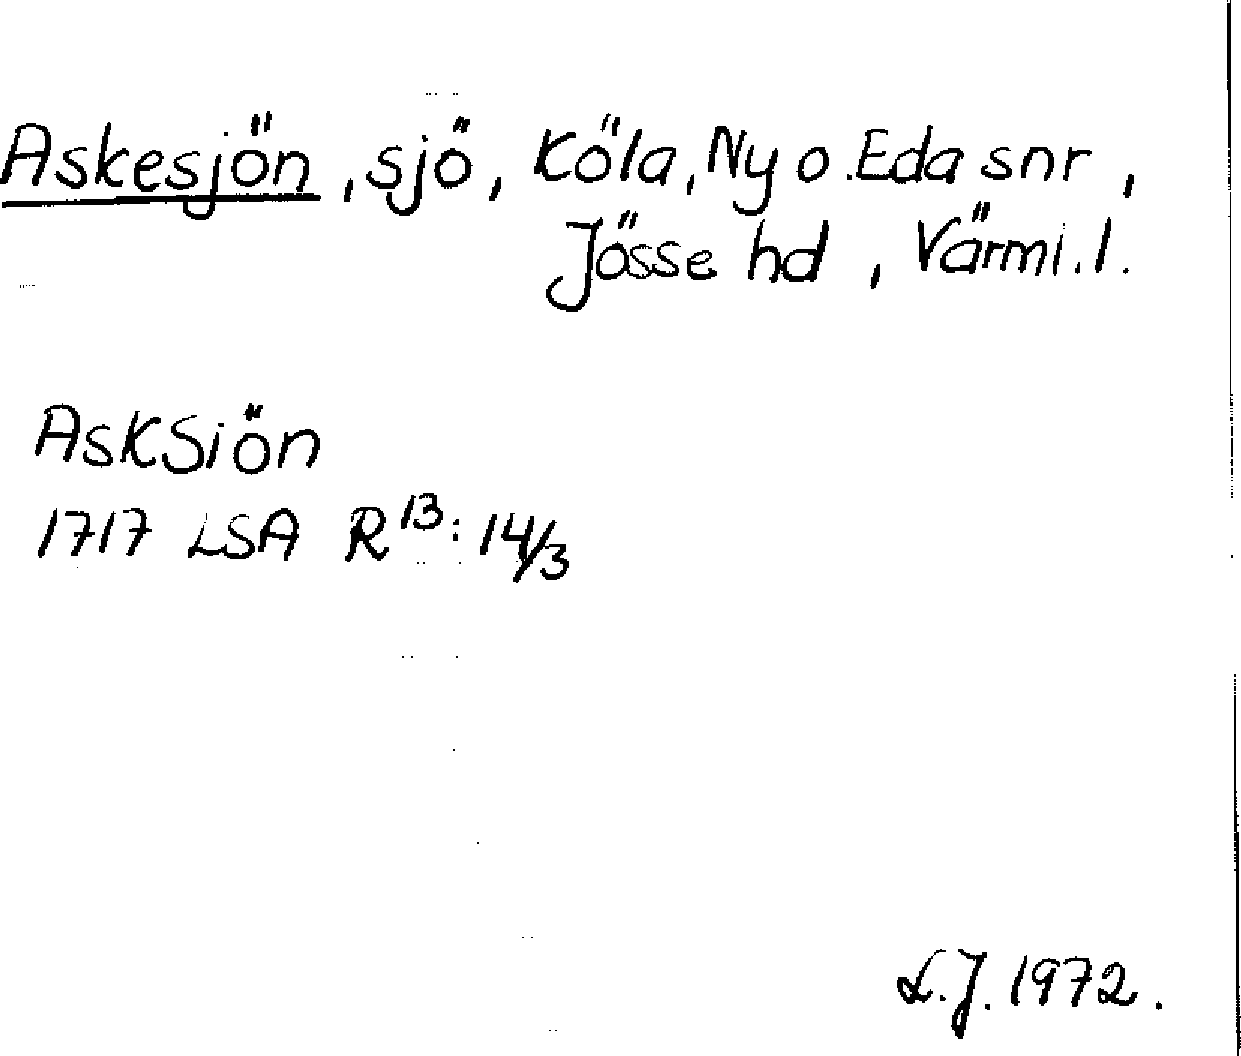 Askesjön, sjö, Köla, Ny o. Eda snr,
Jösse hd, Värml. l.
AskSiön
1717 LSA R¹³: 14/3
L.J. 1972.